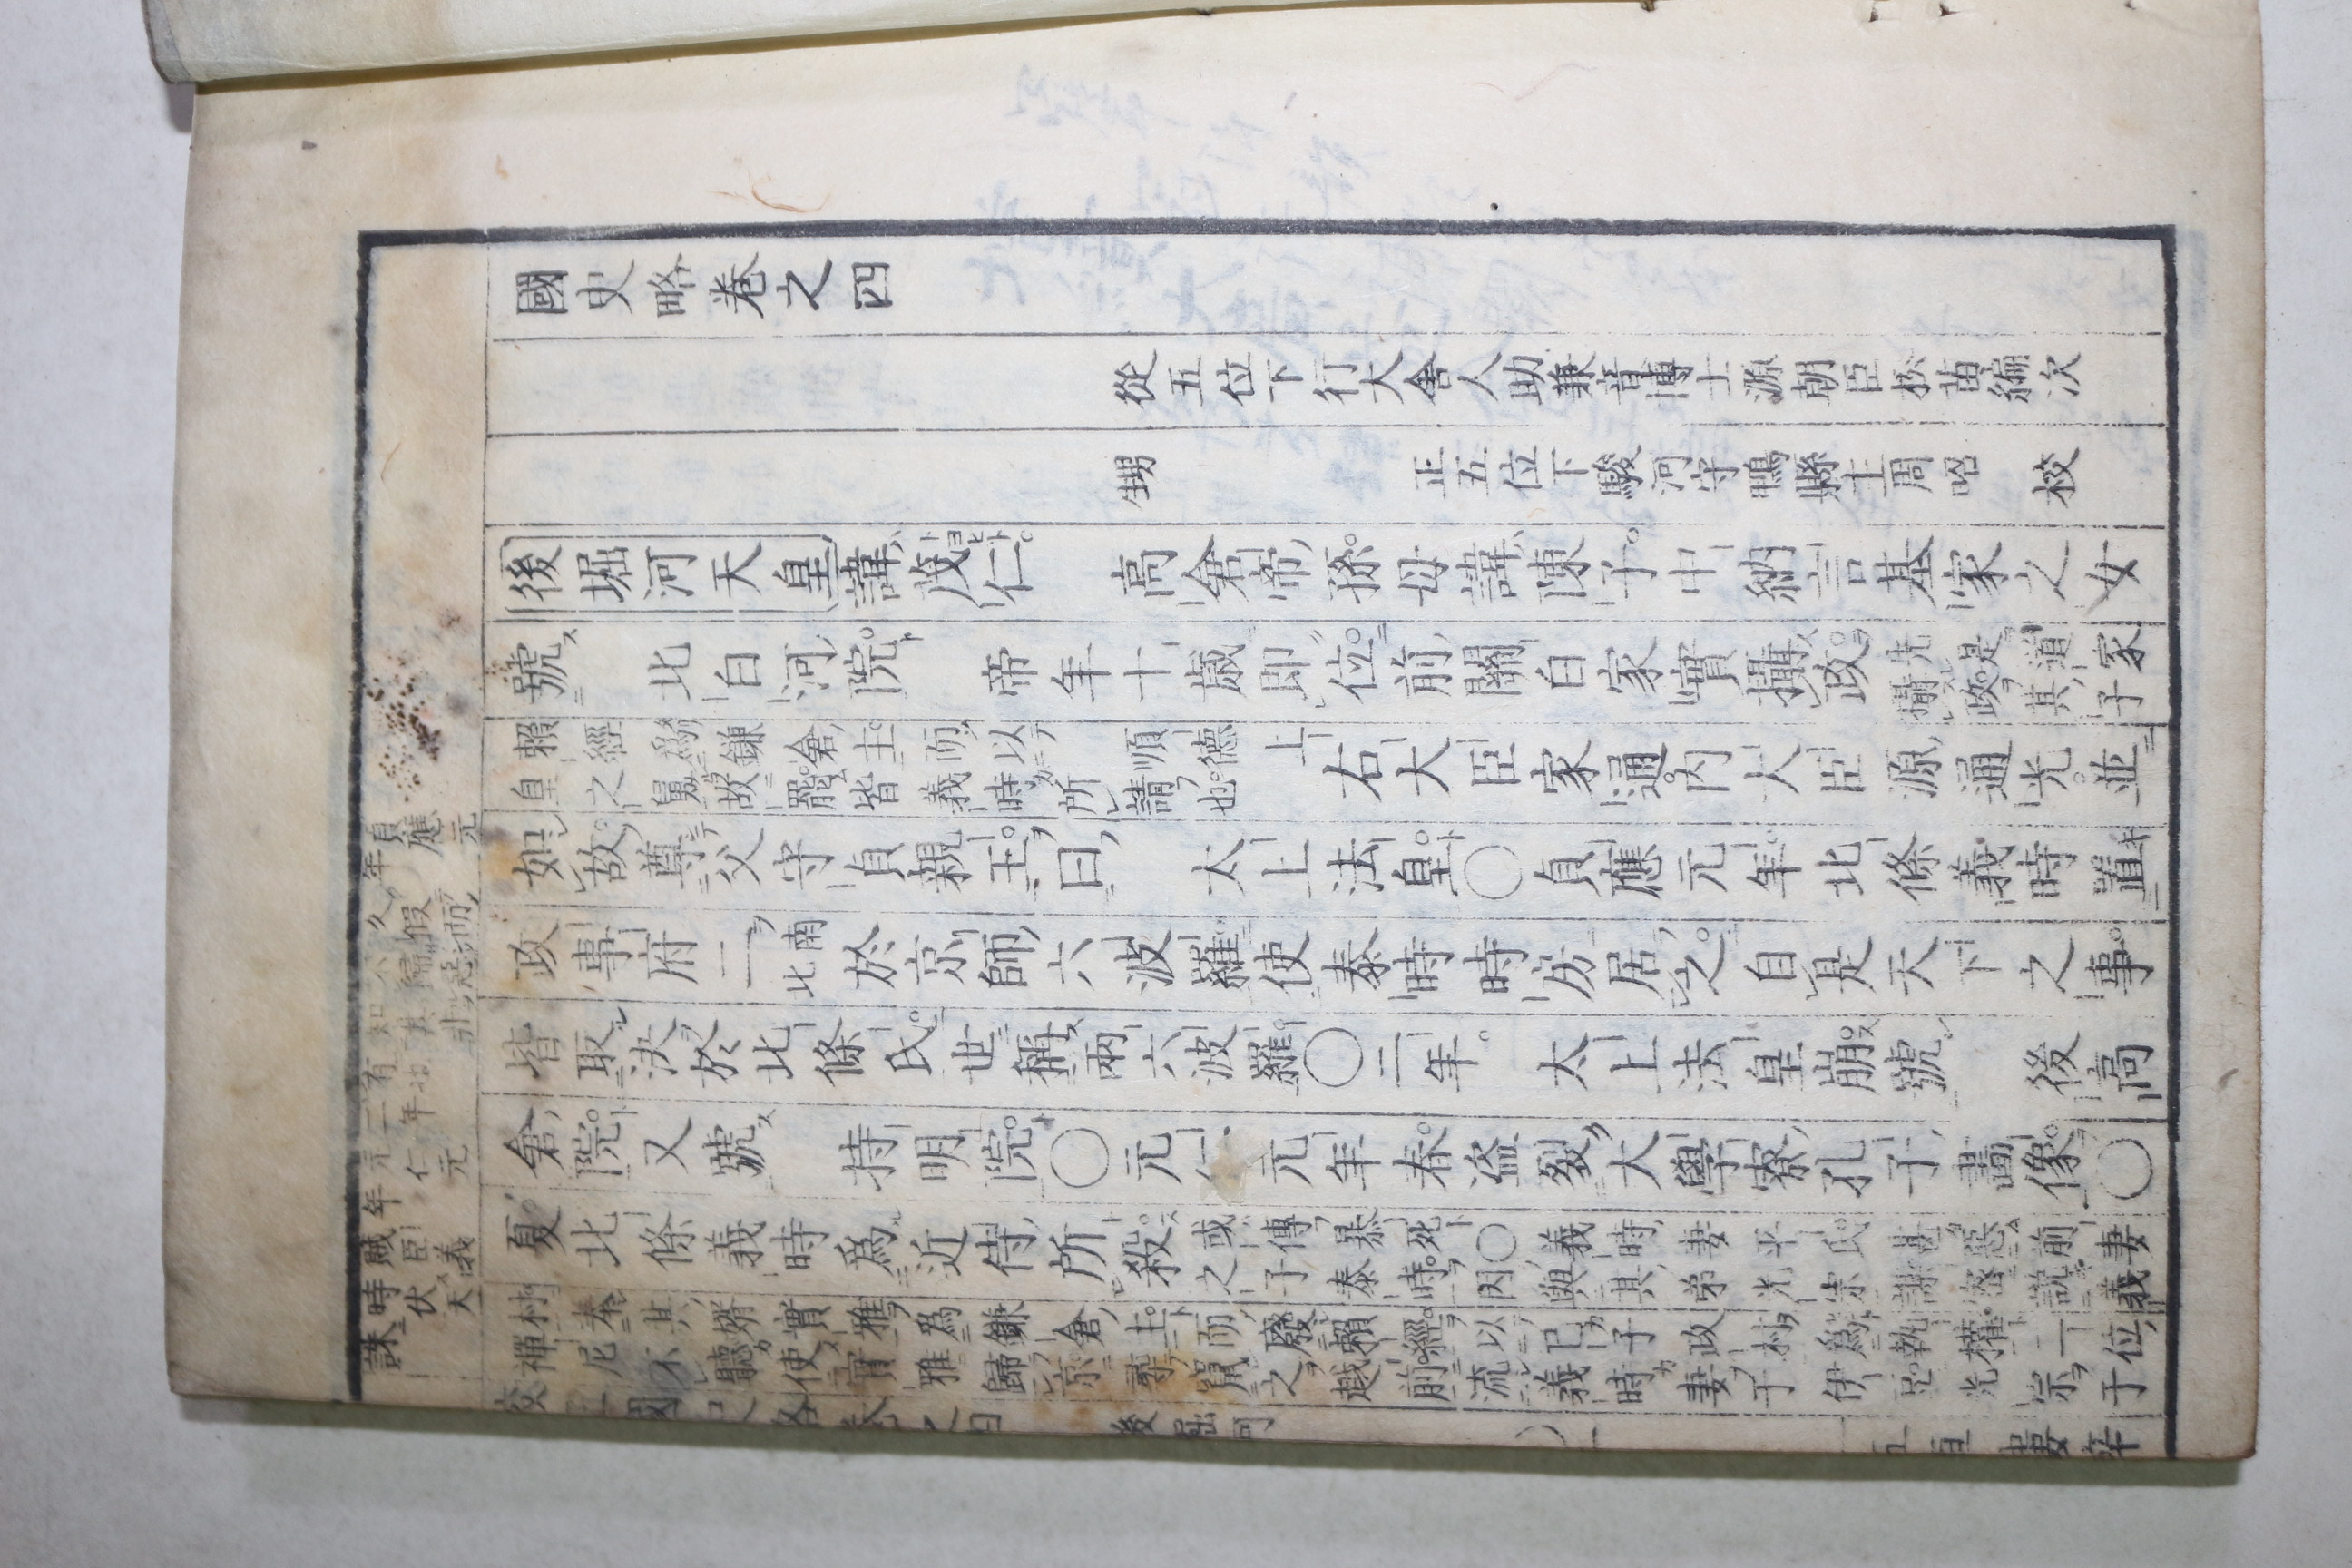 國史略卷之四
從五位下行大舍人助兼音博士源朝臣松苗編次
甥 正五位下駿河守鴨縣主周昭 校
後堀河天皇諱茂仁 高倉帝孫母諱陳子中納言基家之女
號 北白河院 帝年十歲即位前關白家實攝政先是道家攝政其子
賴經爲鎌倉主而以 順德上皇之舅故罷皆義時所請也 右大臣家通內大臣源通光並
如故尊父守貞親王曰 太上法皇〇貞應元年北條義時置
政事府二南北於京師六波羅使泰時時房居之自是天下之事
皆取決於北條氏世稱兩六波羅〇二年 太上法皇崩號 後高
倉院又號 持明院〇元仁元年春盜裂大學寮孔子畫像〇
夏北條義時爲近侍所殺或傳暴死〇義時妻平氏甚惡前妻之子泰時因與其弟光宗謀密說義
村奉其婿實雅爲鎌倉主而廢賴經以己子政村爲執權二位禪尼不聽使實雅歸京尋竄之越前流義時妻于伊豆光宗于
貞應元年
久假而不歸惡知其非有也
二年
元仁元年
賊臣義時伏天誅
校正國史略卷之四 後堀河 〇一 五車樓梓